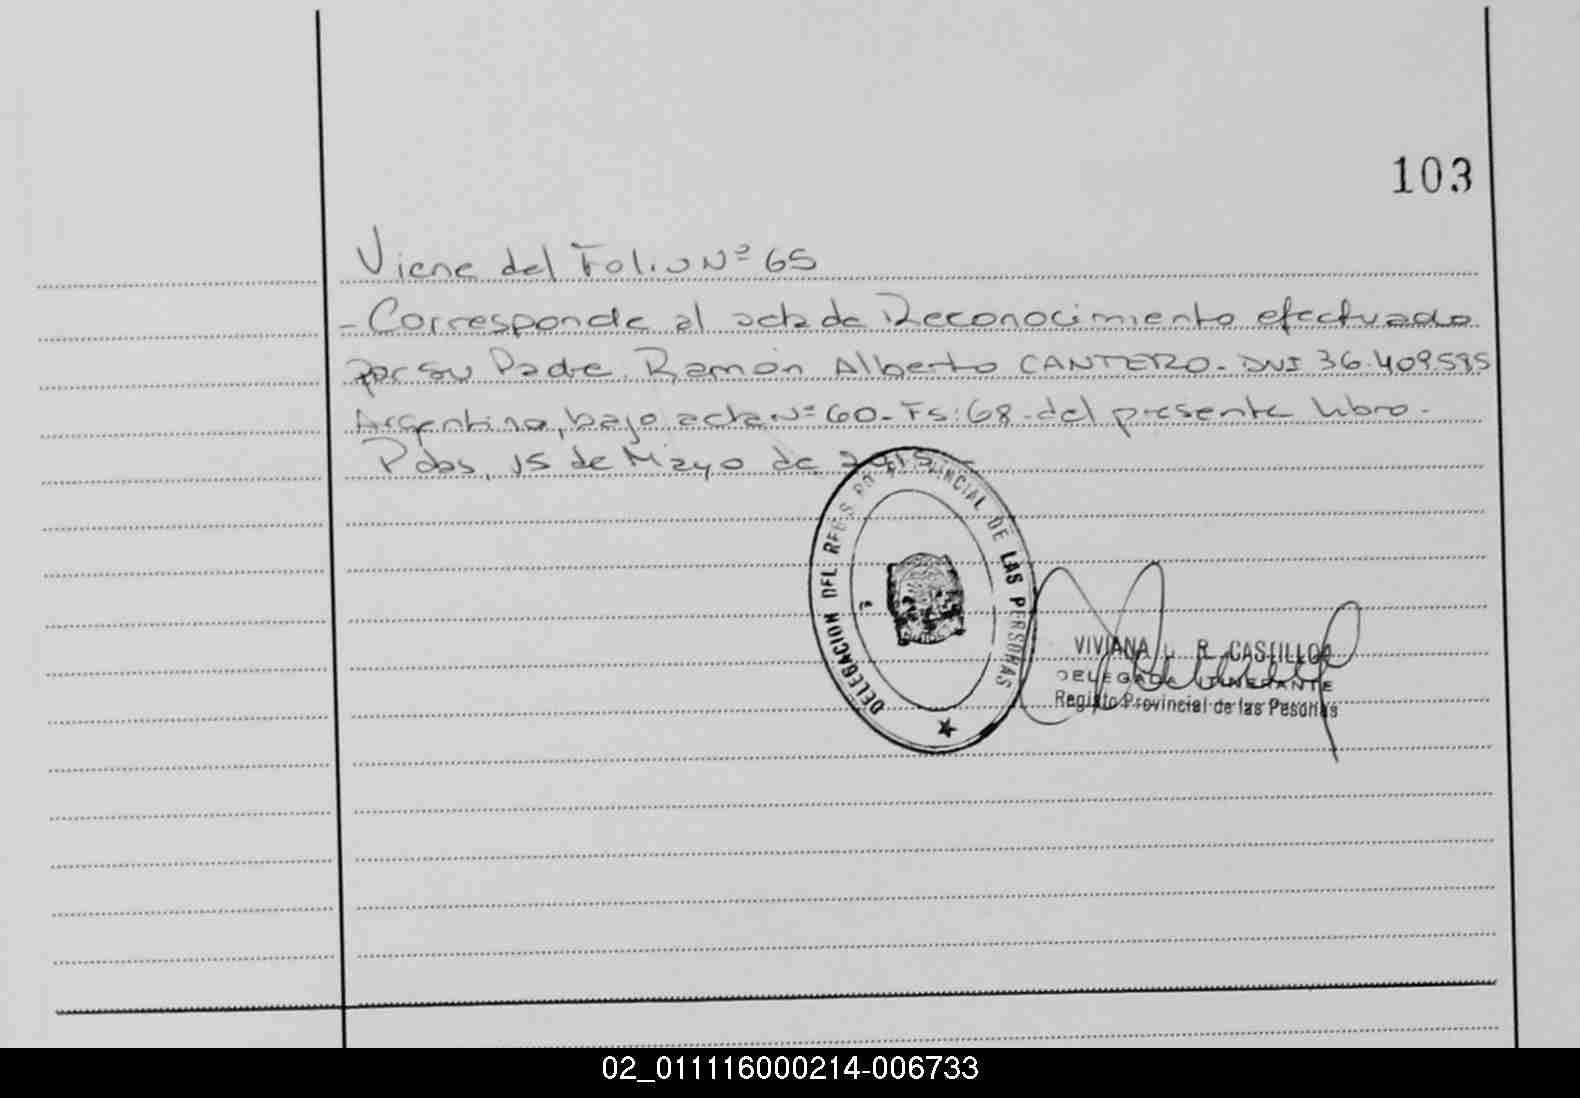 103
Viene del Folio Nº 65
- Corresponde al acta de Reconocimiento efectuado
por su Padre Ramón Alberto CANTERO - DNI 36.409.595
Argentino, bajo acta Nº 60 - Fs: 68 - del presente libro -
Pdas, 15 de Mayo de 2015 -
DELEGACION DEL REGISTRO PROVINCIAL DE LAS PERSONAS
VIVIANA R. CASTILLO
DELEGADA ITINERANTE
Registro Provincial de las Pesonas
02_011116000214-006733